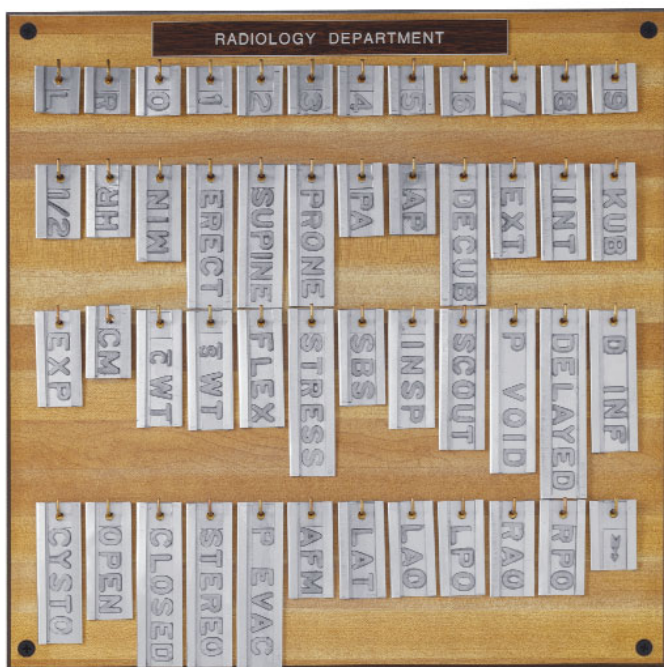 RADIOLOGY DEPARTMENT
L R 0 1 2 3 4 5 6 7 8 9
1/2 HR MIN ERECT SUPINE PRONE PA AP DECUB EXT INT KUB
EXP CM c̄ WT s̄ WT FLEX STRESS SBS INSP SCOUT P VOID DELAYED D INF
CYSTO OPEN CLOSED STEREO P EVAC AFM LAT LAO LPO RAO RPO